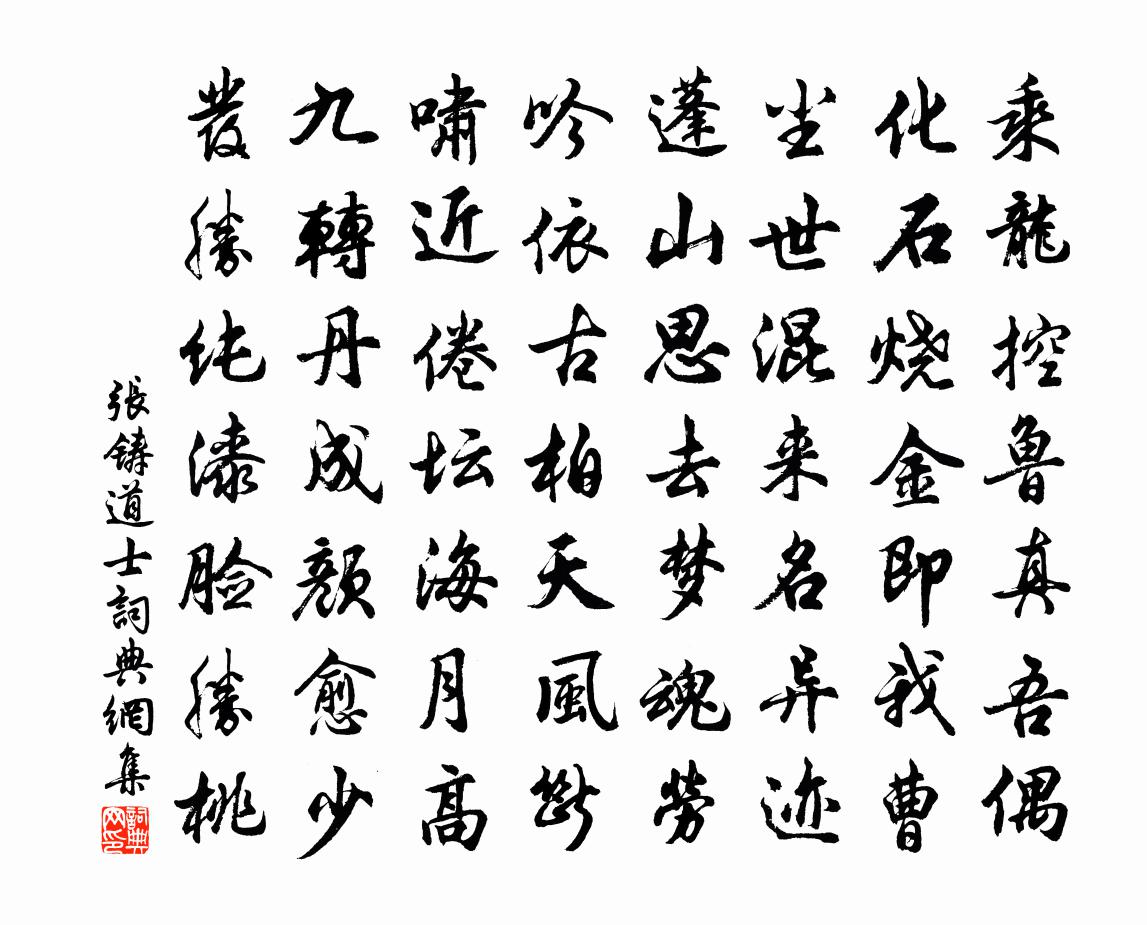 乘龍控魯真吾偶
化石烧金即我曹
尘世混来名异迹
蓬山思去梦魂勞
吟依古柏天風斷
嘯近倦坛海月高
九轉丹成顏愈少
發勝纯漆脸勝桃
張鑄道士詞典網集
詞典网印